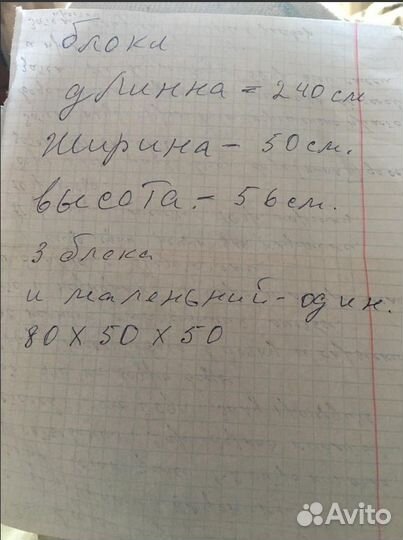 блока
длинна = 240 см
ширина - 50 см.
высота. - 56 см.
3 блока
и маленький - один.
80 х 50 х 50
Avito